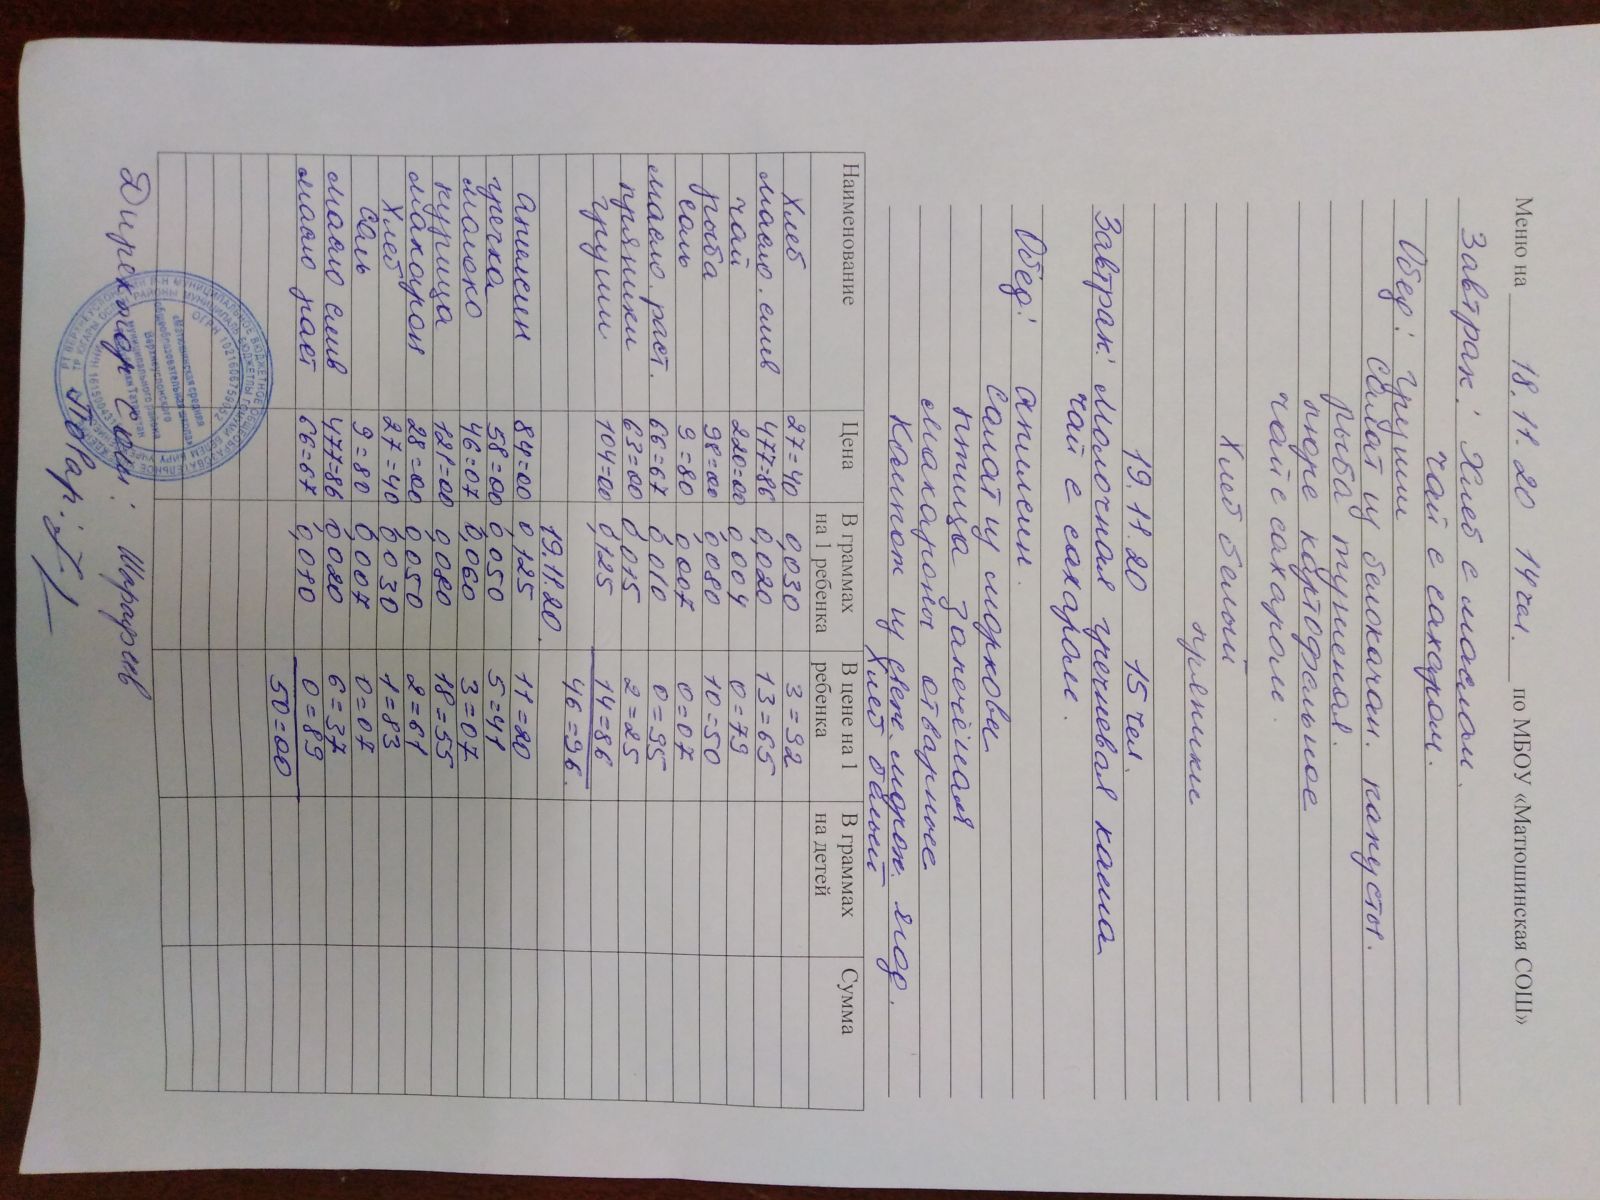 Меню на 18.11.20 14 чел. по МБОУ «Матюшинская СОШ»
Завтрак: Хлеб с маслом.
чай с сахаром.
Обед: груши
Салат из белокачан. капусты.
рыба тушеная.
пюре картофельное
чай с сахаром.
Хлеб белый
пряники
19.11.20 15 чел.
Завтрак: Молочная гречневая каша
чай с сахаром.
Обед: апилсин.
Салат из моркови
птица запечёная
макароны отварные
Компот из свеж. морож. ягод.
Хлеб белый
Наименование Цена В граммах на 1 ребенка В цене на 1 ребенка В граммах на детей Сумма
Хлеб 27=40 0,030 3=92
масло. слив 477=86 0,020 13=65
чай 220=00 0,004 0=79
рыба 98=00 0,080 10=50
соль 9=80 0,007 0=07
масло. раст. 66=67 0,010 0=95
пряники 63=00 0,015 2=25
груши 104=00 0,125 14=86
46=96.
19.11.20.
апилсин 84=00 0,125 11=20
гречка 58=00 0,050 5=41
молоко 46=07 0,060 3=07
курица 121=00 0,080 18=55
макарон 28=00 0,050 2=61
Хлеб 27=40 0,030 1=83
Соль 9=80 0,007 0=07
масло слив 477=86 0,020 6=37
масло раст 66=67 0,010 0=89
50=00
Директор
Повар: